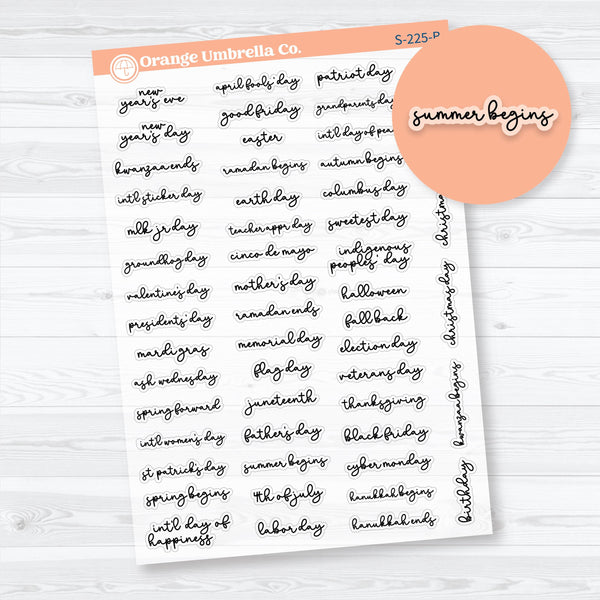 Orange Umbrella Co.
S-225-B
summer begins
new
year's eve
new
year's day
kwanzaa ends
int'l sticker day
mlk jr day
groundhog day
valentine's day
presidents' day
mardi gras
ash wednesday
spring forward
int'l women's day
st patrick's day
spring begins
int'l day of
happiness
april fools' day
good friday
easter
ramadan begins
earth day
teacher appr day
cinco de mayo
mother's day
ramadan ends
memorial day
flag day
juneteenth
father's day
summer begins
4th of july
labor day
patriot day
grandparents day
int'l day of
autumn begins
columbus day
sweetest day
indigenous
peoples' day
halloween
fall back
election day
veterans day
thanksgiving
black friday
cyber monday
hanukkah begins
hanukkah ends
christmas day
kwanzaa begins
birthday